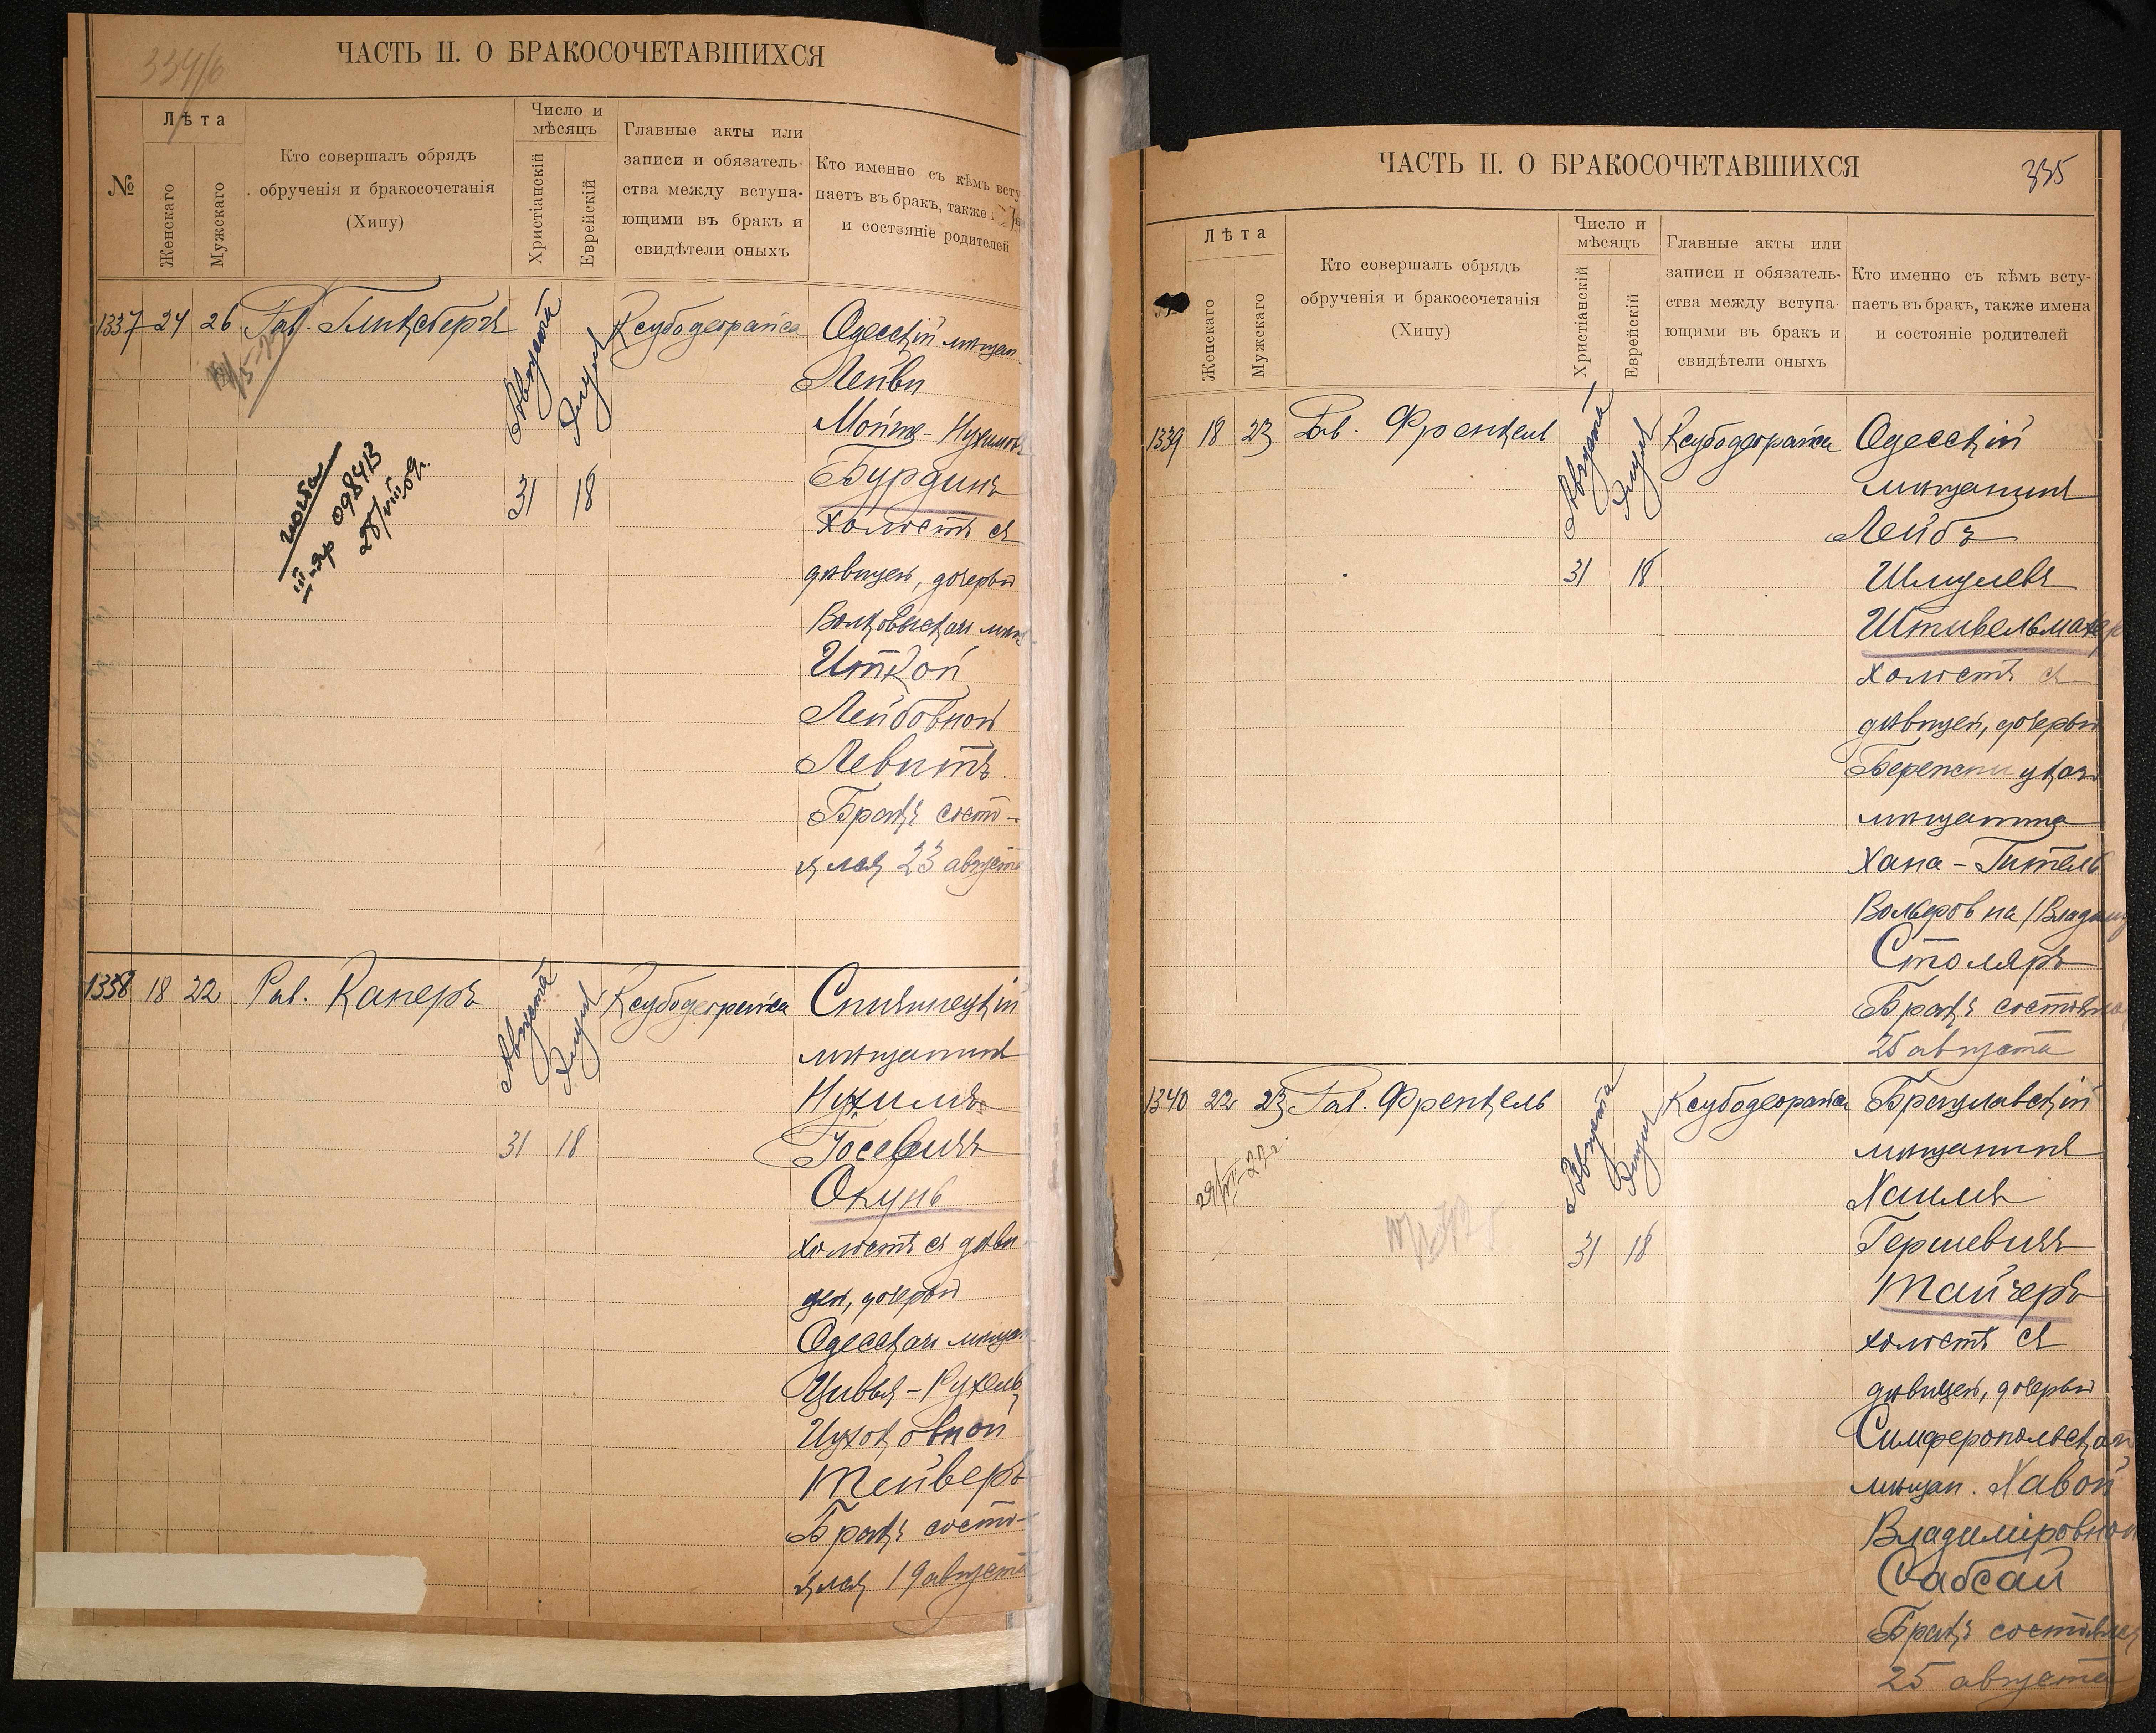 334/б
ЧАСТЬ II. О БРАКОСОЧЕТАВШИХСЯ
№
Лѣта
Женскаго
Мужскаго
Кто совершалъ обрядъ
обрученія и бракосочетанія
(Хипу)
Число и
мѣсяцъ
Христіанскій
Еврейскій
Главные акты или
записи и обязатель-
ства между вступа-
ющими въ бракъ и
свидѣтели оныхъ
Кто именно съ кѣмъ всту
паетъ въ бракъ, также
и состояніе родителей
1337 24 26 Рав. Гликсбергъ
Августа
Элула
31 18
Ксубодеорайса
Одесскій мѣщан
Лейви
Мойше-Нухимовъ
Бурдинъ
холостъ съ
дѣвицей, дочерью
Волковыскаго мѣщ
Иткой
Лейбовной
Левитъ
Бракъ состо-
ялся 23 августа
III-яр 09843
28/VIII 09г.
1338 18 22 Рав. Каперъ
Августа
Элула
31 18
Ксубодеорайса
мѣщанинъ
Нухимъ
Іосевичъ
Окунь
холостъ съ дѣви
цей, дочерью
Одесскаго мѣщан
Цивья-Рухель
Ицковной
Тейверъ
Бракъ состо-
ялся 19 августа
ЧАСТЬ II. О БРАКОСОЧЕТАВШИХСЯ
335
Лѣта
Женскаго
Мужскаго
Кто совершалъ обрядъ
обрученія и бракосочетанія
(Хипу)
Число и
мѣсяцъ
Христіанскій
Еврейскій
Главные акты или
записи и обязатель-
ства между вступа-
ющими въ бракъ и
свидѣтели оныхъ
Кто именно съ кѣмъ всту-
паетъ въ бракъ, также имена
и состояніе родителей
1339 18 23 Рав. Френкель
Августа
Элула
31 18
Ксубодеорайса
Одесскій
мѣщанинъ
Лейбъ
Шмулевъ
Штивельмахер
холостъ съ
дѣвицей, дочерью
мѣщанина
Хана-Гитель
Вольфовна /Владим
Столяръ
Бракъ состоялся
25 августа
1340 22 23 Рав. Френкель
Августа
Элула
31 18
Ксубодеорайса
Брацлавскій
мѣщанинъ
Хаимъ
Гершевичъ
Тайчеръ
холостъ съ
дѣвицей, дочерью
Симферопольскаго
мѣщан. Хавой
Владиміровной
Сабсай
Бракъ состоялся
25 августа